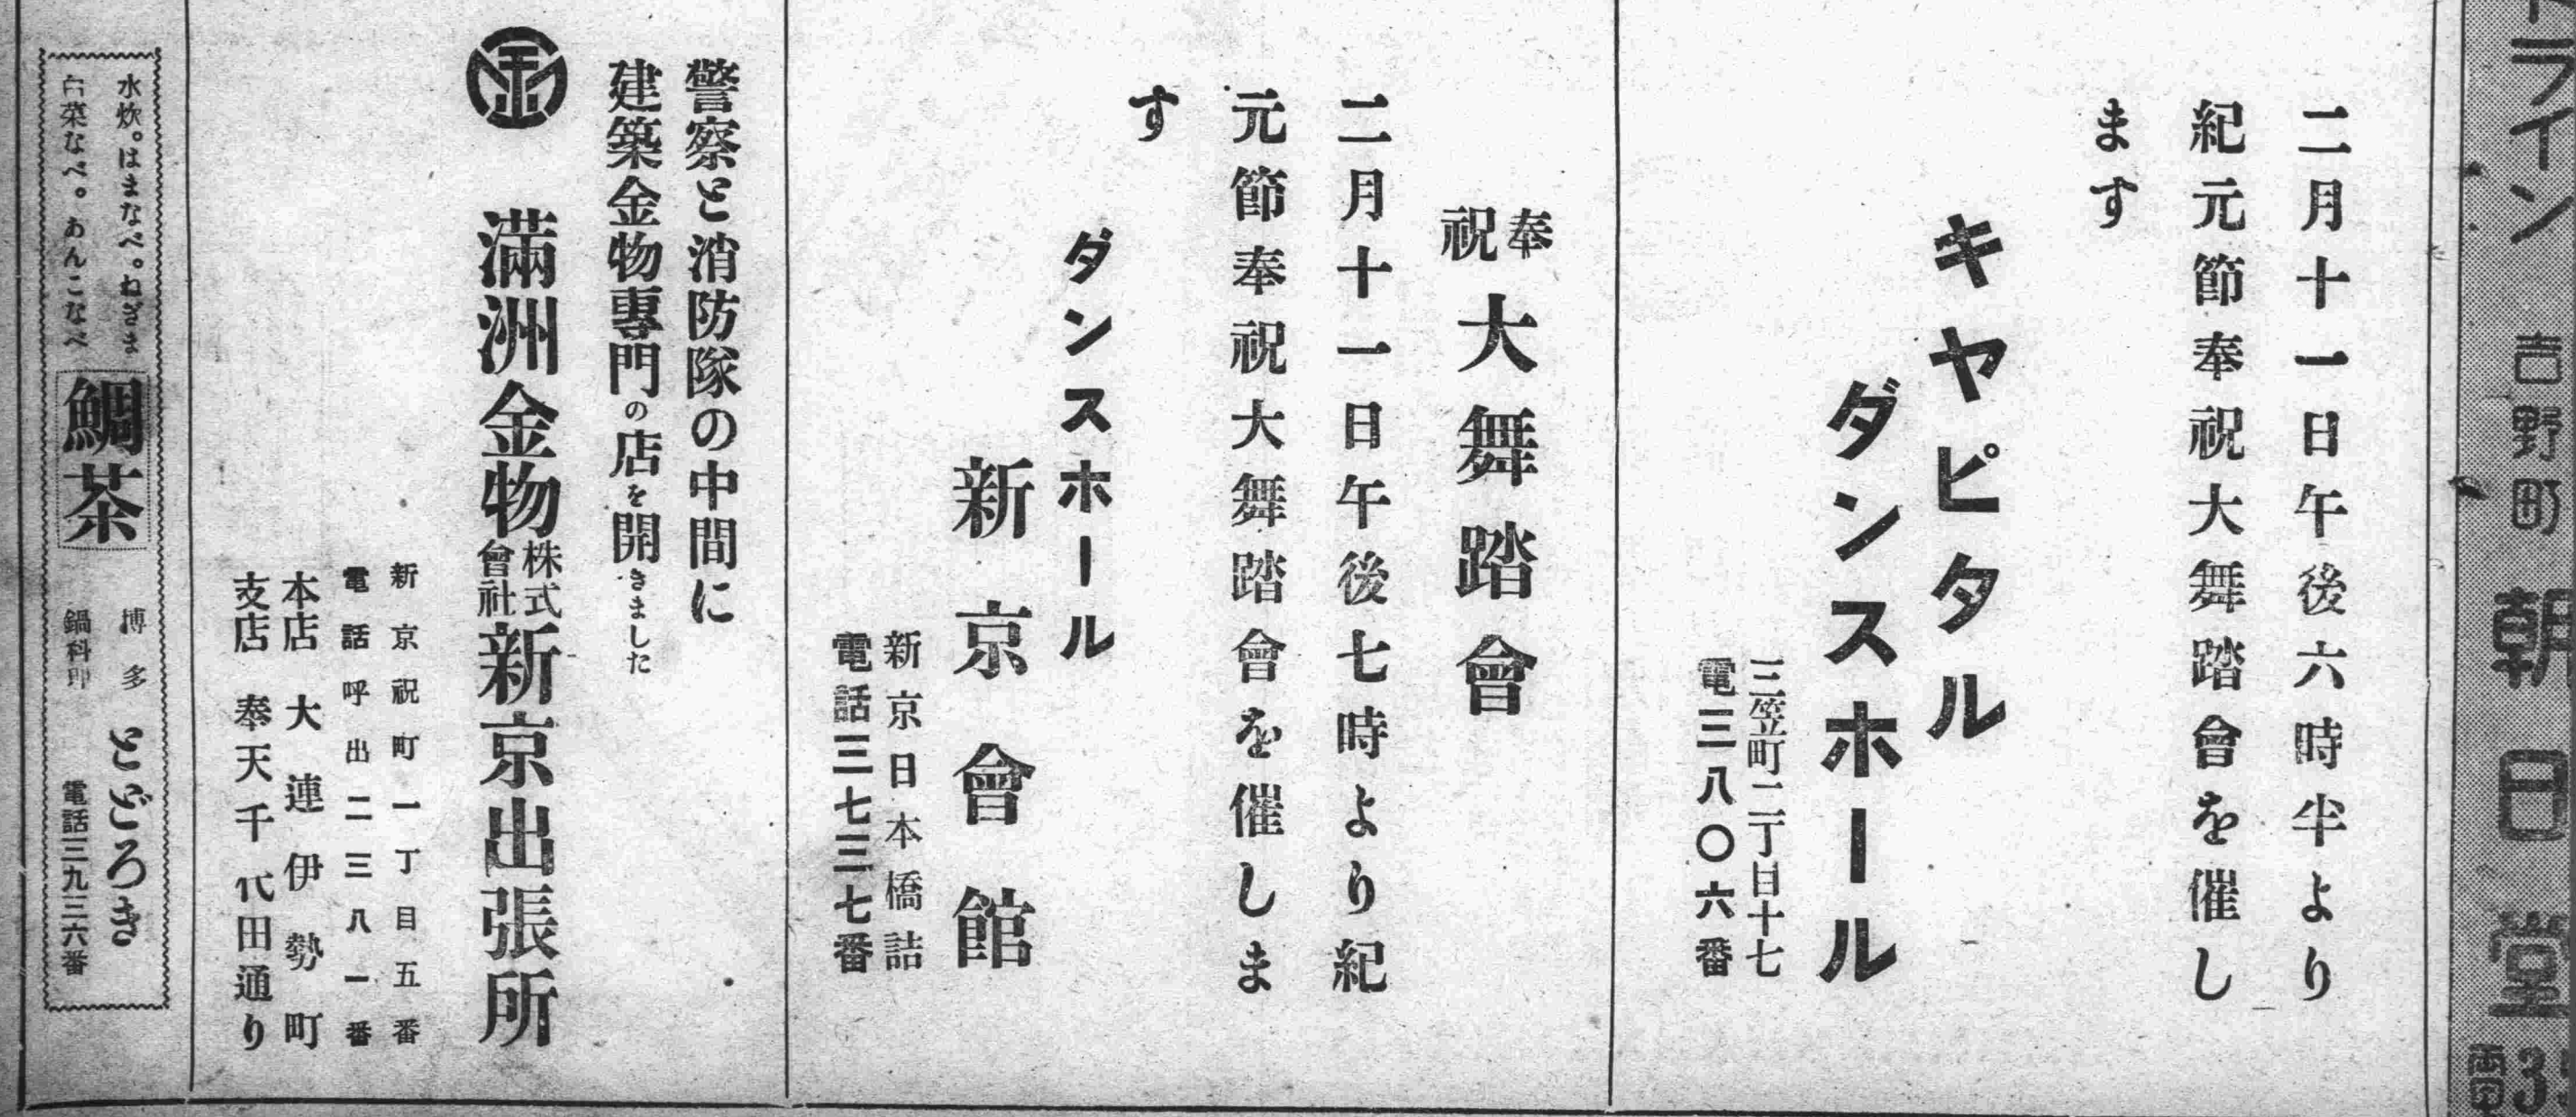 ライン
吉野町
朝日堂
二月十一日午後六時半より
紀元節奉祝大舞踏會を催し
ます
キャピタル
ダンスホール
三笠町二丁目十七
電三八〇六番
奉祝大舞踏會
二月十一日午後七時より紀
元節奉祝大舞踏會を催しま
す
ダンスホール
新京會館
新京日本橋詰
電話三七三七番
警察と消防隊の中間に
建築金物專門の店を開きました
滿洲金物株式會社新京出張所
新京祝町一丁目五番
電話呼出二三八一番
本店 大連伊勢町
支店 奉天千代田通り
水炊。はまなべ。ねぎま
白菜なべ。あんこなべ
鯛茶
博多
鍋料理
とどろき
電話三九三六番